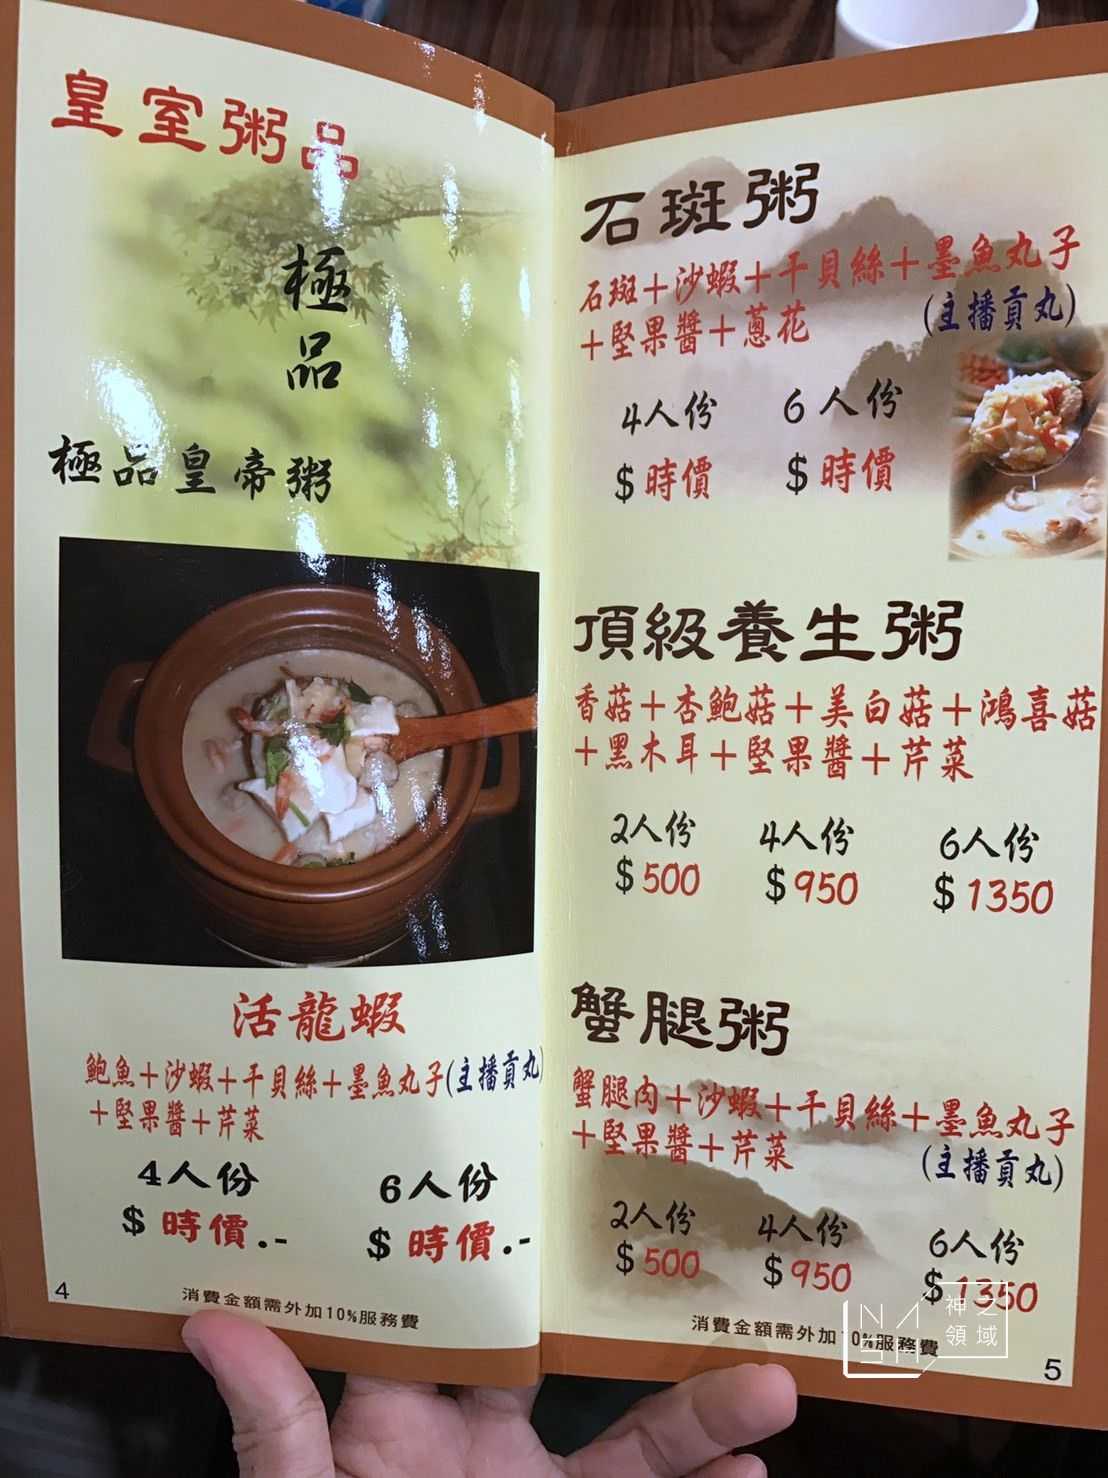 皇室粥品
極品
極品皇帝粥
活龍蝦
鮑魚＋沙蝦＋干貝絲＋墨魚丸子(主播貢丸)
＋堅果醬＋芹菜
4人份 6人份
$時價.- $時價.-
4
消費金額需外加10%服務費
石斑粥
石斑＋沙蝦＋干貝絲＋墨魚丸子
＋堅果醬＋蔥花 (主播貢丸)
4人份 6人份
$時價 $時價
頂級養生粥
香菇＋杏鮑菇＋美白菇＋鴻喜菇
＋黑木耳＋堅果醬＋芹菜
2人份 4人份 6人份
$500 $950 $1350
蟹腿粥
蟹腿肉＋沙蝦＋干貝絲＋墨魚丸子
＋堅果醬＋芹菜 (主播貢丸)
2人份 4人份 6人份
$500 $950 $1350
消費金額需外加10%服務費
5
神之
領域